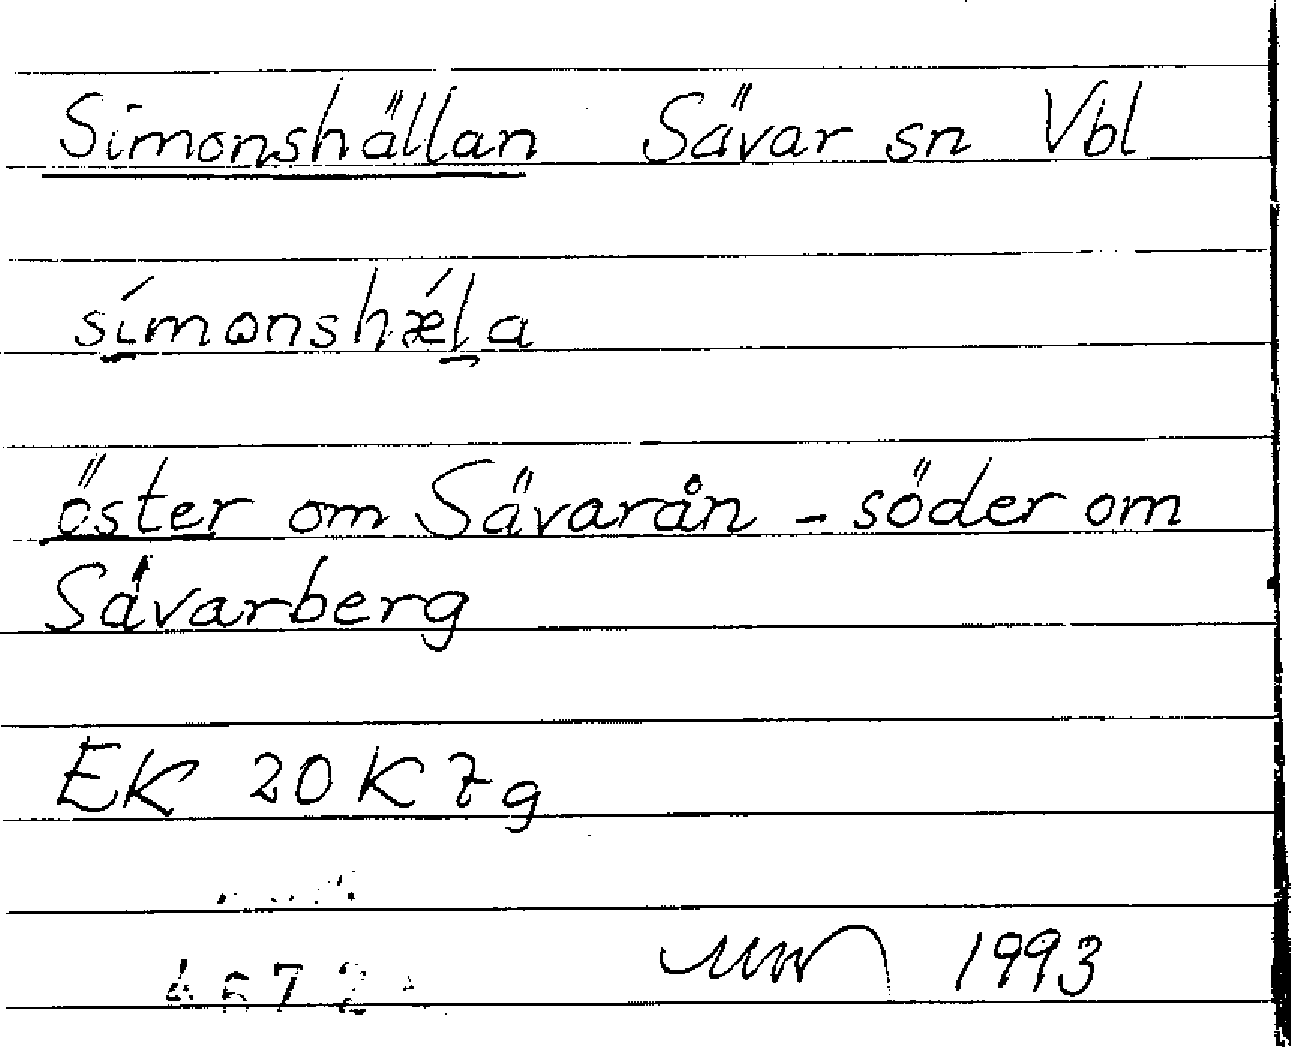 Simonshällan Sävar sn Vbl
símonshǽla
öster om Sävarån - söder om
Sävarberg
EK 20 K 7g
1993